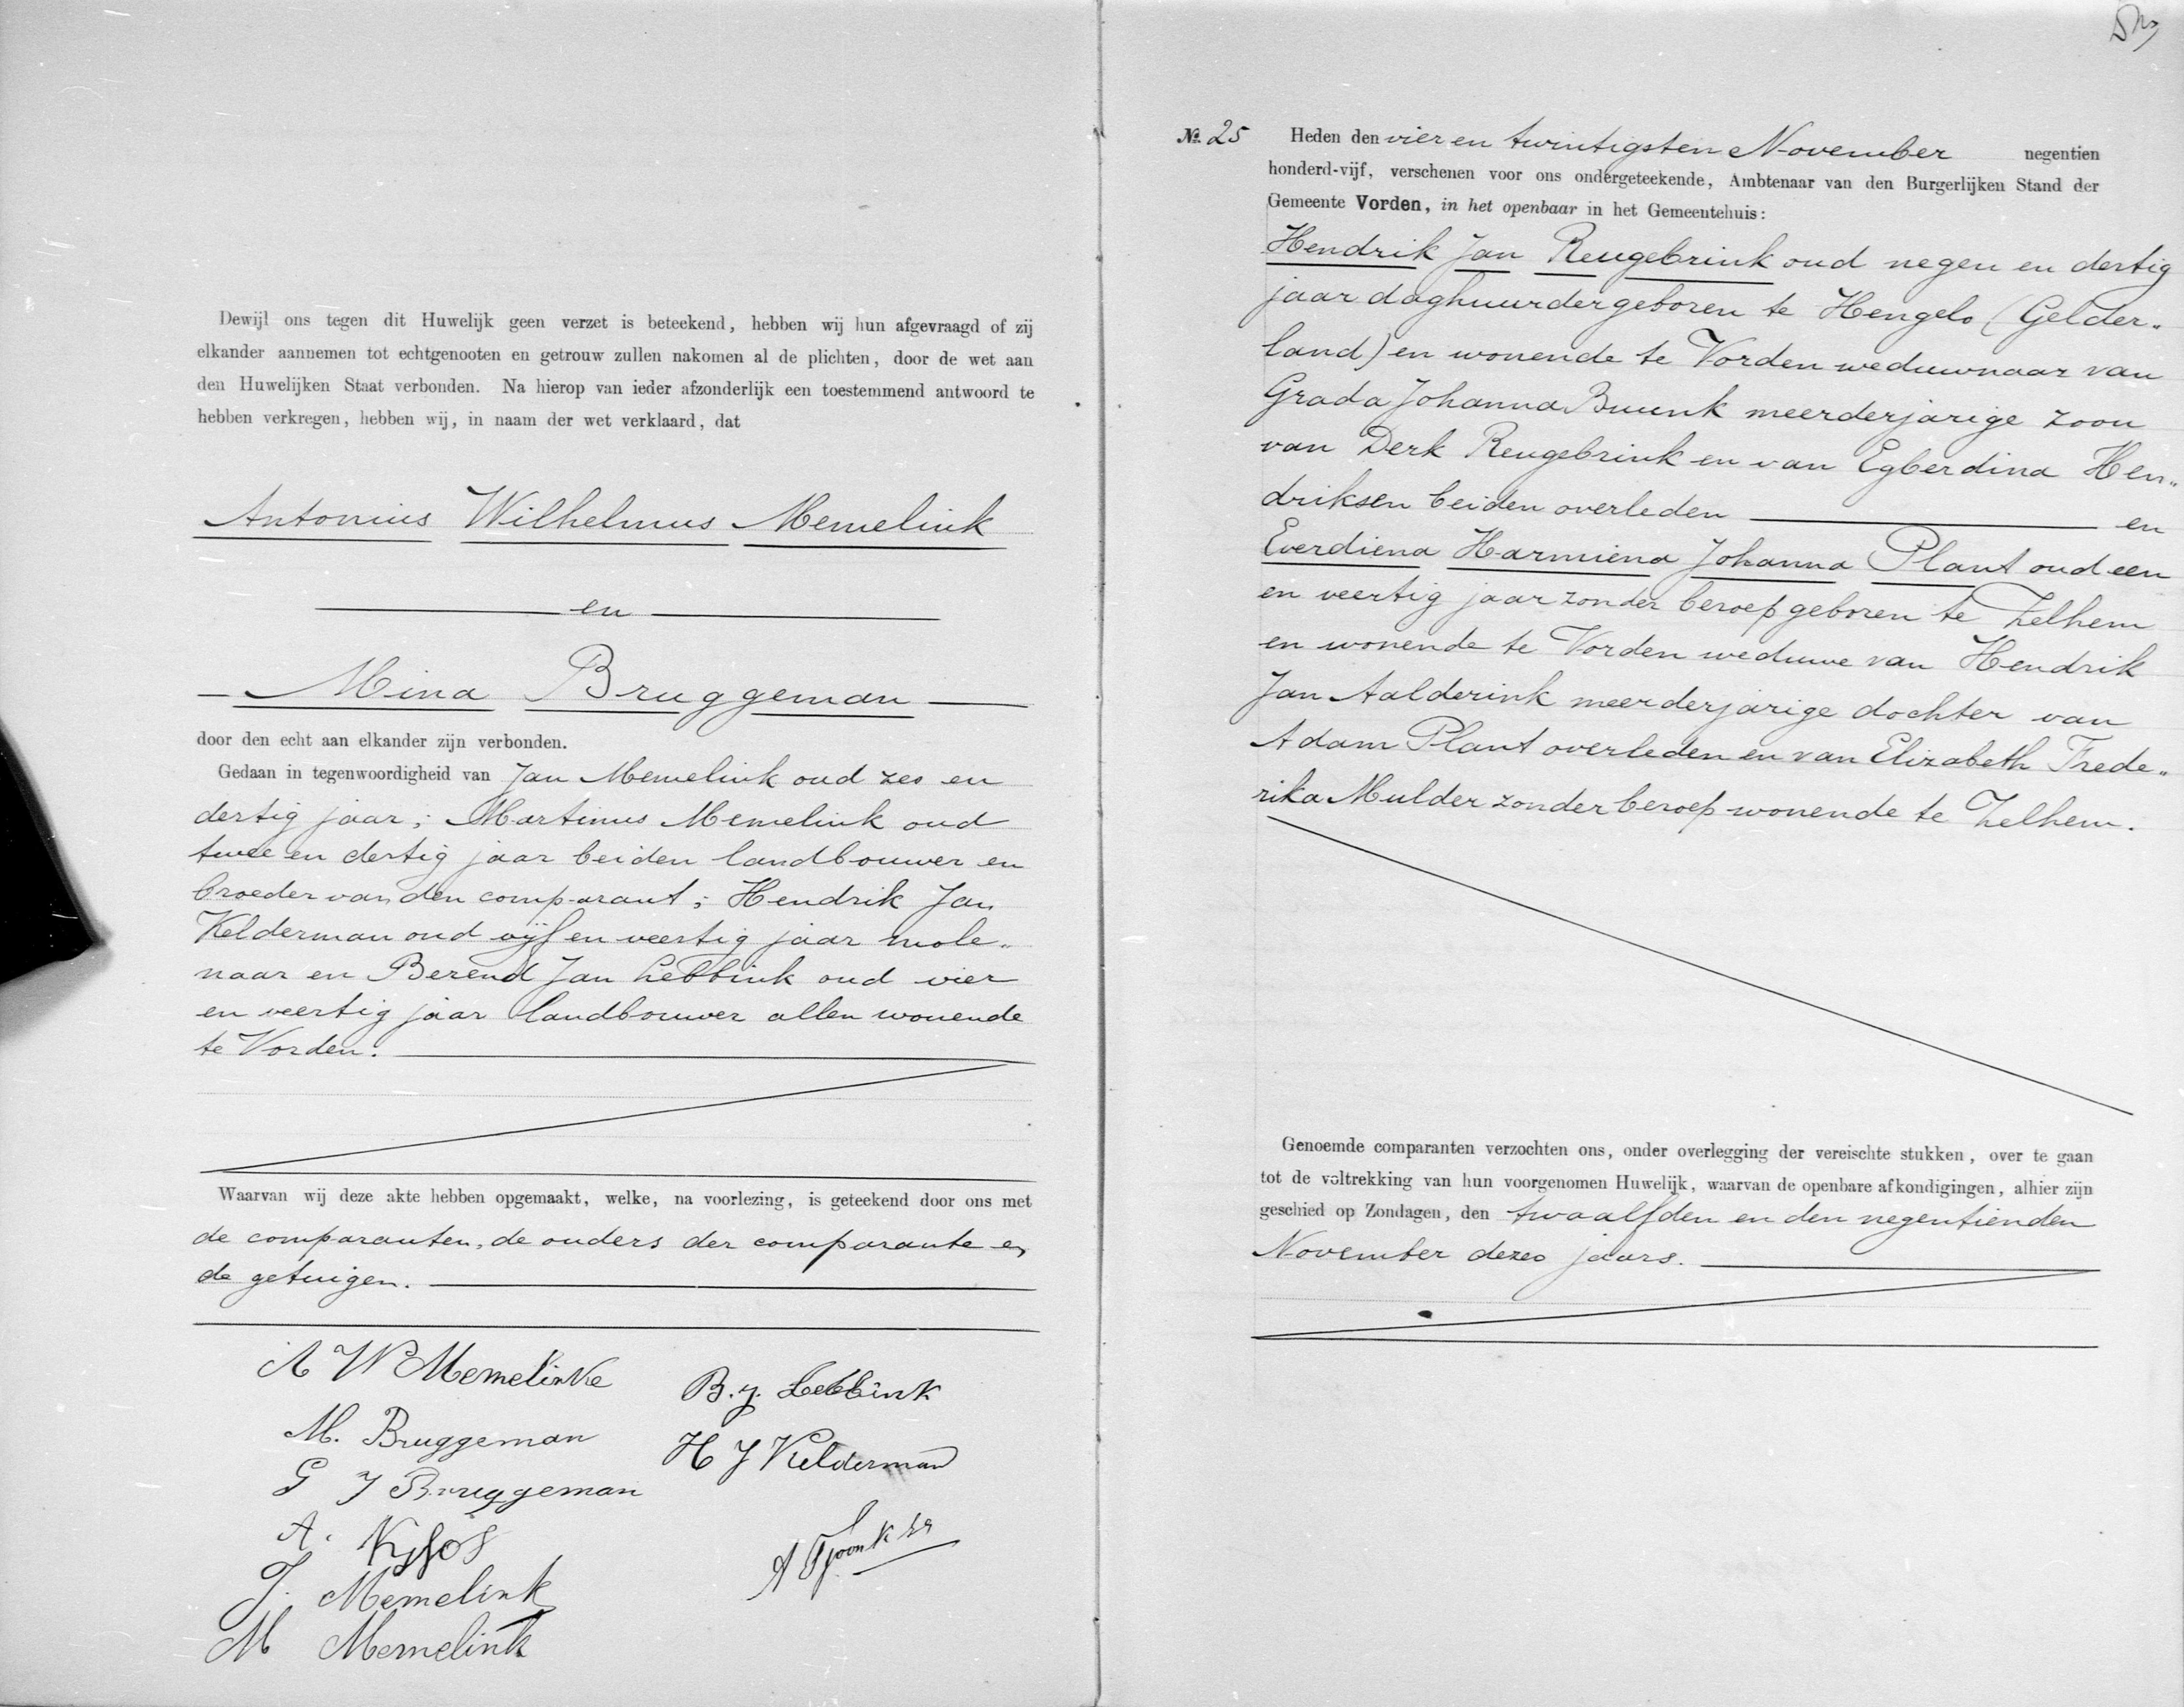 Dewijl ons tegen dit Huwelijk geen verzet is beteekend, hebben wij hun afgevraagd of zij
elkander aannemen tot echtgenooten en getrouw zullen nakomen al de plichten, door de wet aan
den Huwelijken Staat verbonden. Na hierop van ieder afzonderlijk een toestemmend antwoord te
hebben verkregen, hebben wij, in naam der wet verklaard, dat
Antonius Wilhelmus Memelink
en
Mina Bruggeman
door den echt aan elkander zijn verbonden.
Gedaan in tegenwoordigheid van Jan Memelink oud zes en
dertig jaar; Martinus Memelink oud
twee en dertig jaar beiden landbouwer en
broeder van den comparant; Hendrik Jan
Kelderman oud vijf en veertig jaar mole„
naar en Berend Jan Lebbink oud vier
en veertig jaar landbouwer allen wonende
te Vorden.
Waarvan wij deze akte hebben opgemaakt, welke, na voorlezing, is geteekend door ons met
de comparanten, de ouders der comparante en
de getuigen.
A W Memelinke
M. Bruggeman
G J Bruggeman
A.
J. Memelink
M Memelink
B. J. Lebbink
H J Kelderman
No. 25 Heden den vier en twintigsten November negentien
honderd-vijf, verschenen voor ons ondergeteekende, Ambtenaar van den Burgerlijken Stand der
Gemeente Vorden, in het openbaar in het Gemeentehuis:
Hendrik Jan Reugebrink oud negen en dertig
jaar daghuurder geboren te Hengelo (Gelder„
land) en wonende te Vorden weduwnaar van
Grada Johanna Buunk meerderjarige zoon
van Derk Reugebrink en van Egberdina Hen„
driksen beiden overleden en
Everdiena Harmiena Johanna Plant oud een
en veertig jaar zonder beroep geboren te Zelhem
en wonende te Vorden weduwe van Hendrik
Jan Aalderink meerderjarige dochter van
Adam Plant overleden en van Elizabeth Frede„
rika Mulder zonder beroep wonende te Zelhem.
Genoemde comparanten verzochten ons, onder overlegging der vereischte stukken, over te gaan
tot de voltrekking van hun voorgenomen Huwelijk, waarvan de openbare afkondigingen, alhier zijn
geschied op Zondagen, den twaalfden en den negentienden
November dezes jaars.